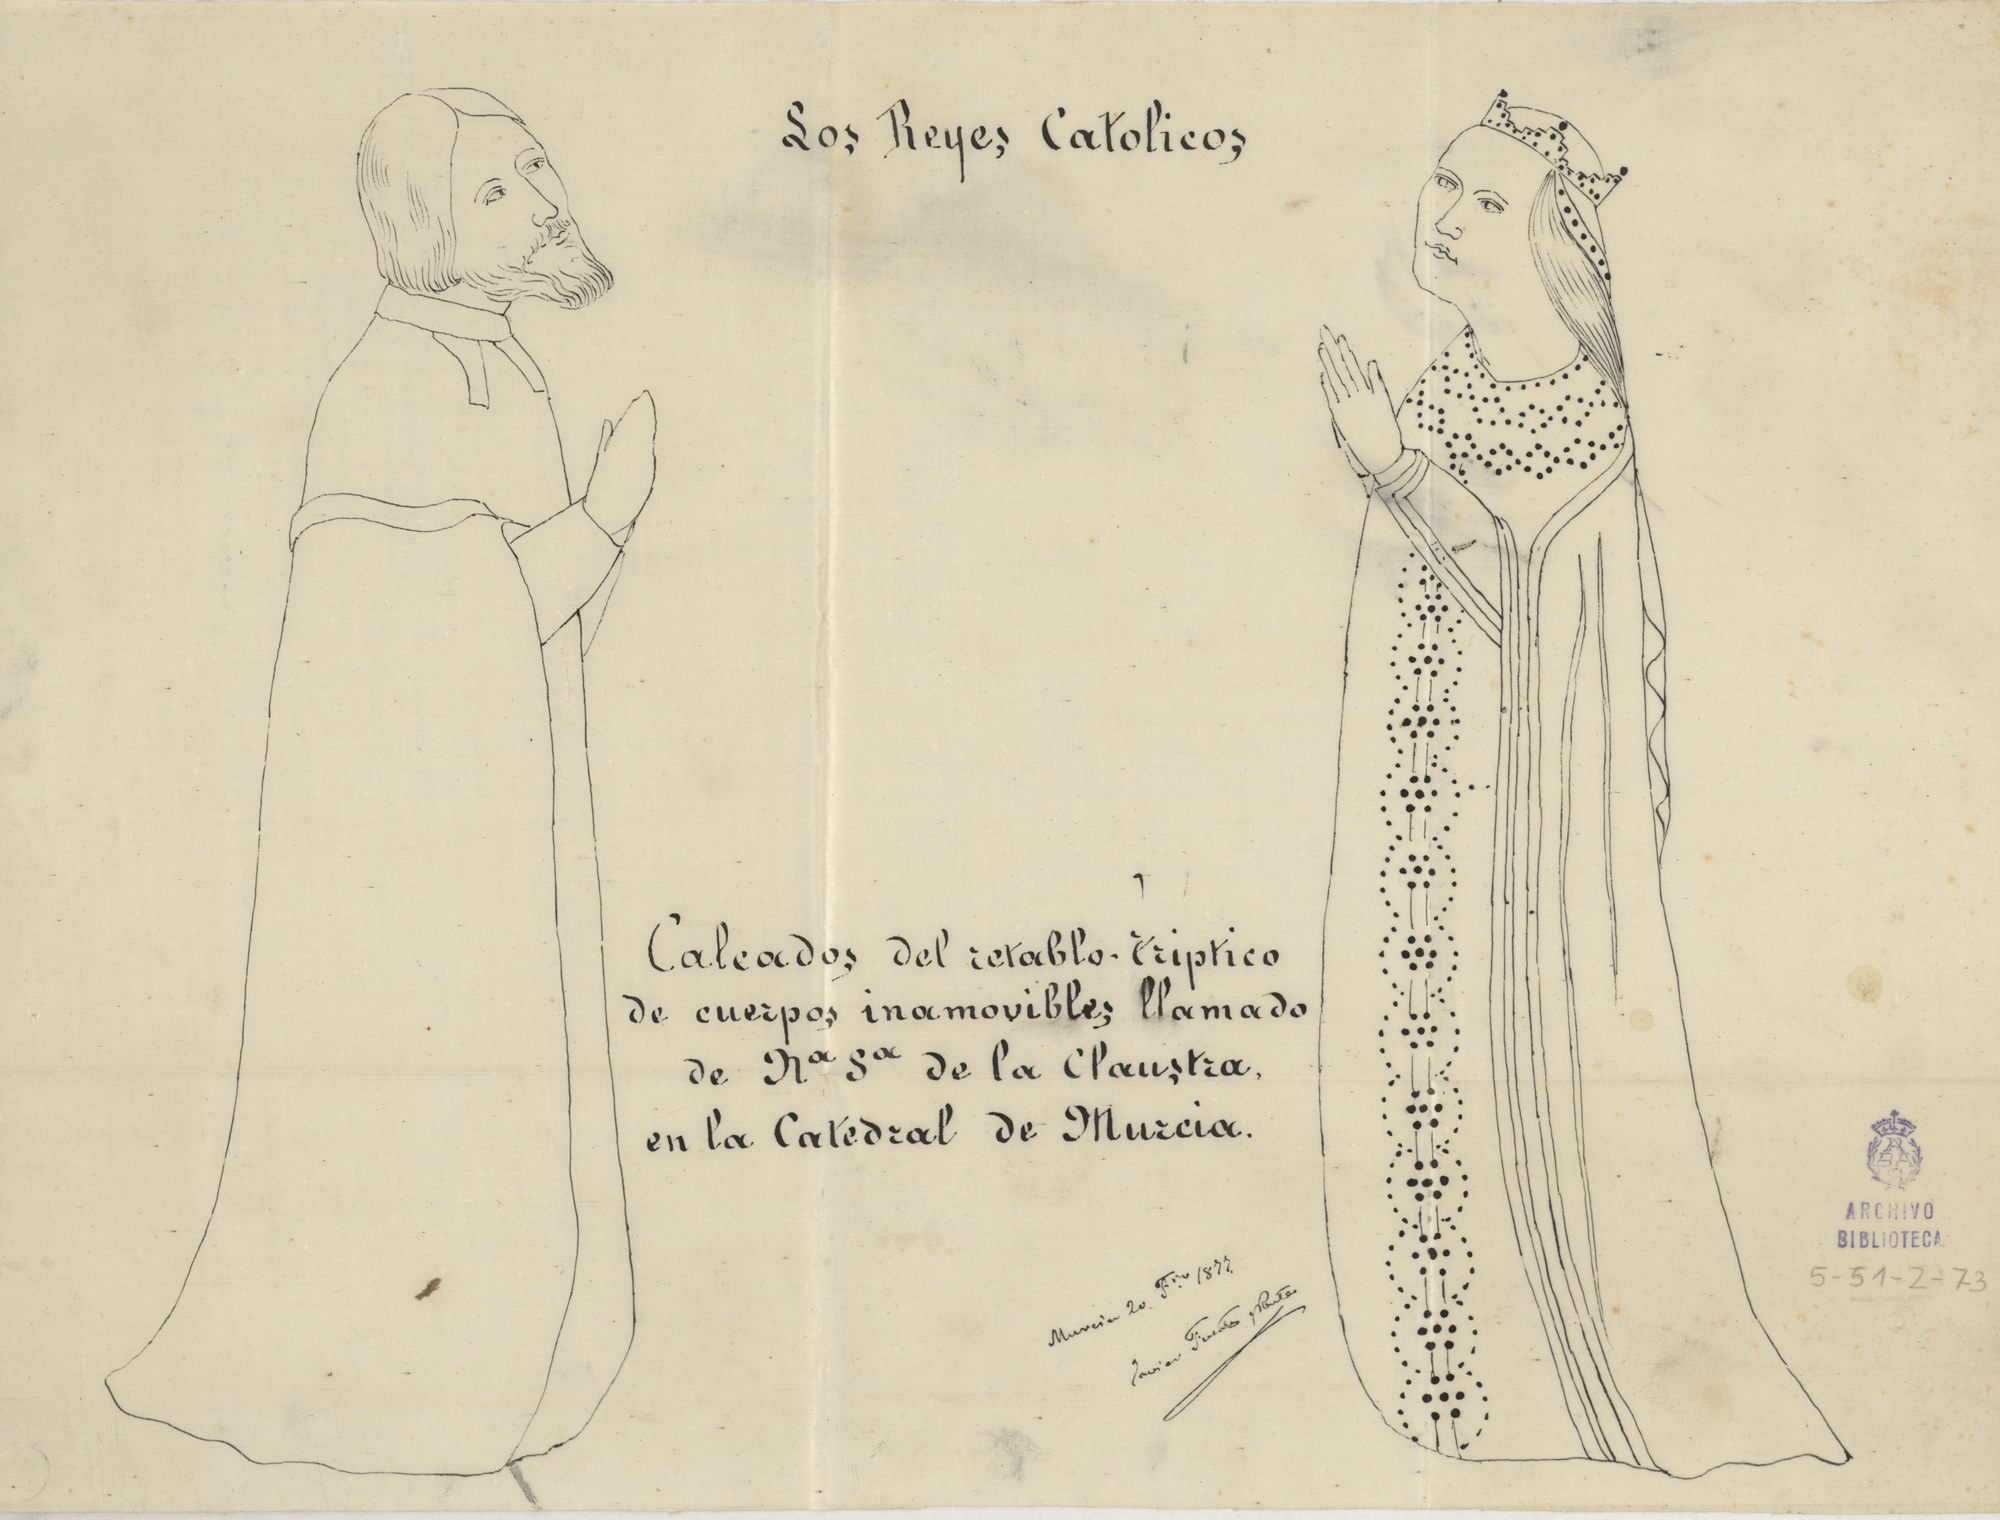 Los Reyes Catolicos
Calcados del retablo-triptico
de cuerpos inamovibles llamado
de Nª Sª de la Claustra,
en la Catedral de Murcia.
Murcia 20. Fro 1877
Javier Fuentes y Ponte
ARCHIVO
BIBLIOTECA
5-51-2-73